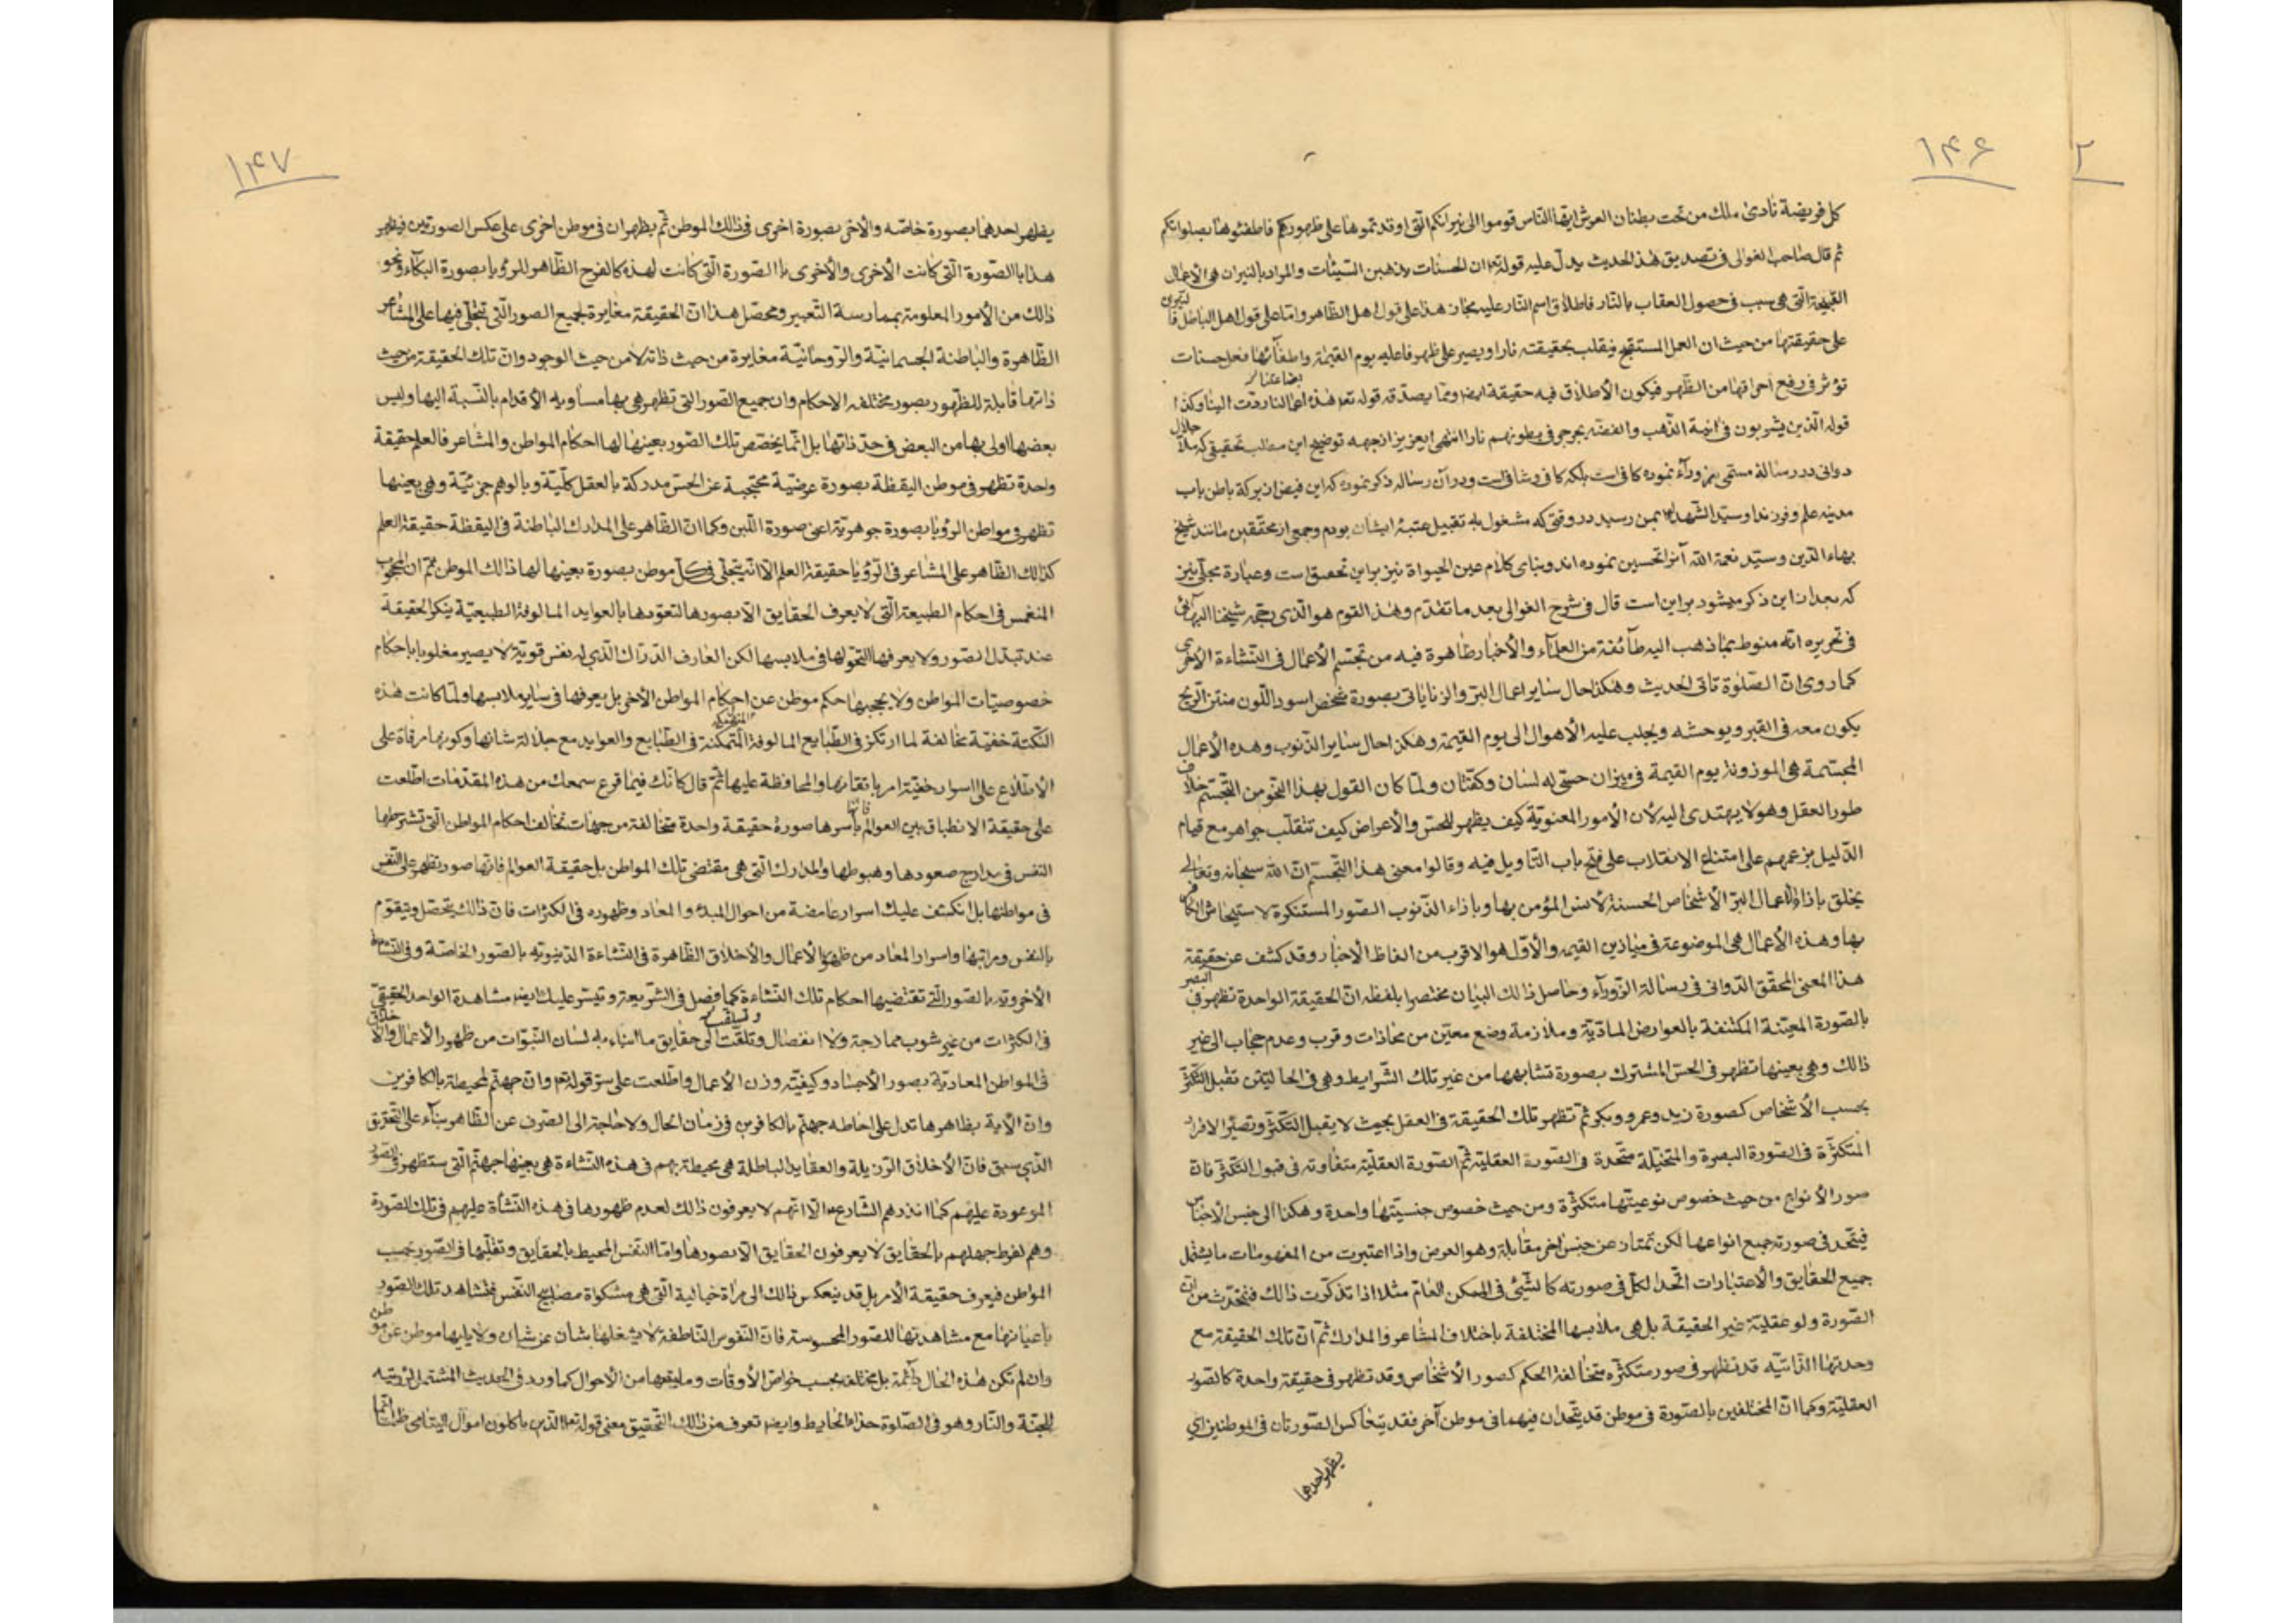 ۲
۱۴۶
کل فریضة نادی ملک من تحت بطنان العرش ایها الناس قوموا الی نیرانکم التی اوقدتموها علی ظهورکم فاطفئوها بصلواتکم
ثم قال صاحب الغوالی فی تصدیق هذ الحدیث یدل علیه قوله تع ان الحسنات یذهبن السیئات والمراد بالنیران هی الاعمال
القبیحة التی هی سبب فی حصول العقاب بالنار فاطلاق اسم النار علیه مجاز هذا علی قول اهل الظاهر واما علی قول اهل الباطل
علی حقیقتها من حیث ان العمل المستقبح ینقلب بحقیقته نارا ویصیر علی ظهر فاعلیه یوم القیمة واطفائها فعل حسنات
تؤثر فی رفع احراقها من الظهر فیکون الاطلاق فیه حقیقة ایضا ومما یصدقه قوله تعه هذه بضاعتنا ردت الینا وکذا
قوله الذین یشربون فی انیة الذهب والفضه یجرجر فی بطونهم نارا انتهی ایعزیز ازجهه توضیح این مطلب تحقیقی که ملا جلال
دوانی در رساله مسمی بزورآء نموده کافی است بلکه کافی وشافی است ودر آن رساله ذکر نموده که این فیض از برکة باطن باب
مدینه علم وفرزند او سید الشهداء بمن رسید در وقتی که مشغول به تقبیل عتبهٔ ایشان بودم وجمعی از محققین مانند شیخ
بهاء الدین وسید نعمة الله آنرا تحسین نموده اند وبنای کلام عین الحیواة نیز براین تحقیق است وعبارة مجلی نیز
که بعد از این ذکر میشود براین است قال فی شرح الغوالی بعد ما تقدم وهذ القوم هو الذی رجحه شیخنا البهائی
فی تحریره انه منوط بما ذهب الیه طآئفة من العلمآء والأخبار ظاهرة فیه من تجسم الأعمال فی النشاءة الأخری
کما روی ان الصلوة تاتی الحدیث وهکذا حال سایر اعمال البر والزنا یاتی بصورة شخص اسود اللون منتن الریح
یکون معه فی القبر ویوحشه ویجلب علیه الأهوال الی یوم القیمة وهکذا حال سایر الذنوب وهذه الأعمال
المجسمة هی الموزونة یوم القیمة فی میزان حسی له لسان وکفتان ولما کان القول بهذا النحو من التجسم خلاف
طور العقل وهو لا یهتدی الیه لأن الأمور المعنویة کیف یظهر للحس والأعراض کیف تنقلب جواهر مع قیام
الدلیل بزعمهم علی امتناع الانقلاب علی فتح باب التاویل فیه وقالوا معنی هذا التجسم ان الله سبحانه وتعالی
یخلق بازاء الأعمال البر الأشخاص الحسنة لانس المؤمن بها وبازاء الذنوب الصور المستنکرة لاستیحاش الکافر
بها وهذه الأعمال هی الموضوعة فی میادین القیمه والأول هو الاقرب من الفاظ الأخبار وقد کشف عن حقیقة
هذا المعنی المحقق الدوانی فی رسالة الزورآء وحاصل ذالک البیان مختصرا بلفظه ان الحقیقة الواحدة تظهر فی البصر
بالصورة المعینة المکتنفة بالعوارض المادیة وملازمة وضع معین من محاذات وقرب وعدم حجاب الی غیر
ذالک وهی بعینها تظهر فی الحس المشترک بصورة تشابهها من غیر تلک الشرایط وهی فی الحالتین تقبل التکثر
بحسب الأشخاص کصورة زید وعمرو وبکر ثم تظهر تلک الحقیقة فی العقل بحیث لا یقبل التکثر وتصیر الافراد
المتکثرة فی الصورة البصرة والمتخیلة متحدة فی الصورة العقلیة ثم الصورة العقلیة متفاوته فی قبول التکثر فان
صور الأنواع من حیث خصوص نوعیتها متکثرة ومن حیث خصوص جنسیتها واحدة وهکذا الی جنس الأجناس
فیتحد فی صورته جمیع انواعها لکن تمتاز عن جنس اخر مقابلة وهو العرض واذا اعتبرت من المفهومات ما یشتمل
جمیع الحقایق والأعتبارات اتحد الکل فی صورته کالشیئ فی الممکن العام مثلا اذا تذکرت ذالک فنحدث من ان
الصورة ولو عقلیة غیر الحقیقة بل هی ملابسها المختلفة باختلاف المشاعر والمدارک ثم ان تلک الحقیقة مع
وحدتها الذاتیه قد تظهر فی صور متکثره متخالفة الحکم کصور الأشخاص وقد تظهر فی حقیقة واحدة کالصور
العقلیة وکما ان المختلفین بالصورة فی موطن قد یتحدان فیهما فی موطن آخر فقد یتعاکس الصورتان فی الموطنین ای
یظهر احدهما
۱۴۷
یظهر احدهما بصورة خاصه والأخر بصورة اخری فی ذالک الموطن ثم یظهران فی موطن اخری علی عکس الصورتین فیظهر
هذا باالصورة التی کانت الأخری والأخری باالصورة التی کانت لهذه کالفرح الظاهر للرؤیا بصورة البکاء ونحو
ذالک من الأمور المعلومة بممارسة التعبیر ومحصل هذا ان الحقیقة مغایرة لجمیع الصور التی تتجلی فیها علی المشاعر
الظاهرة والباطنة الجسمانیة والروحانیة مغایرة من حیث ذاته لا من حیث الوجود وان تلک الحقیقة من حیث
ذاتها قابلة للظهور بصور مختلفه الاحکام وان جمیع الصور التی تظهر هی بها مساویه الأقدام بالنسبة الیها ولیس
بعضها اولی بها من البعض فی حد ذاتها بل انما یخصص تلک الصور بعینها لها احکام المواطن والمشاعر فالعلم حقیقة
واحدة تظهر فی موطن الیقظة بصورة عرضیة محتجبة عن الحس مدرکة بالعقل کلیة وبالوهم جزئیة وهی بعینها
تظهر فی مواطن الرؤیا بصورة جوهریة اعنی صورة اللبن وکما ان الظاهر علی المدارک الباطنة فی الیقظة حقیقة العلم
کذالک الظاهر علی المشاعر فی الرؤیا حقیقة العلم الا انه یتجلی فی کل موطن بصورة بعینها لها ذالک الموطن ثم ان المحجوب
المنغمس فی احکام الطبیعة التی لا یعرف الحقایق الا بصورها لتعودها بالعواید المالوفة الطبیعیة ینکر الحقیقة
عند تبدل الصور ولا یعرفها التحولها فی ملابسها لکن العارف الدراک الذی له نفس قویة لا یصیر مغلوبا باحکام
خصوصیات المواطن ولا یحجبها حکم موطن عن احکام المواطن الأخر بل یعرفها فی سایر ملابسها ولما کانت هذه
النکتة خفیة مخالفة لما ارتکز فی الطبایع المالوفة المتمکنة فی الطبایع والعواید مع جلالة شانها وکونها مرقاة علی
الأطلاع علی اسرار خفیة امر باتقانها والمحافظة علیها ثم قال کانک فیما قرع سمعک من هذه المقدمات اطلعت
علی حقیقة الانطباق بین العوالم فانها باسرها صورة حقیقة واحدة متخالفة من جهات تخالف احکام المواطن التی تشترطها
النفس فی مدارج صعودها وهبوطها والمدارک التی هی مقتضی تلک المواطن بل حقیقة العوالم فانها صور تظهر علی النفس
فی مواطنها بل انکشف علیک اسرار غامضة من احوال المبدء والمعاد وظهوره فی الکثرات فان ذالک یتحصل ویتقوم
بالنفس ومراتبها واسرار المعاد من ظهور الأعمال والأخلاق الظاهرة فی النشاءة الدنیویه بالصور الخاصة وفی النشاءة
الأخرویه بالصور التی تقتضیها احکام تلک النشاءة کما فصل فی الشریعة وتیسر علیک ایضا مشاهدة الواحد الحقیقی
فی الکثرات من غیر شوب ممازجة ولا انفصال وتلقت الی حقایق ما انباء به لسان النبوات من ظهور الأعمال والأخلاق
فی المواطن المعادیة بصور الأجساد وکیفیة وزن الأعمال واطلعت علی سر قوله تع وان جهنم لمحیطة بالکافرین
وان الأیة بظاهرها تدل علی احاطه جهنم بالکافرین فی زمان الحال ولا حاجة الی الصرف عن الظاهر بناء علی التحقیق
الذی سبق فان الأخلاق الرذیلة والعقاید الباطلة هی محیطة بهم فی هذه النشاءة هی بعینها جهنم التی ستظهر فی الصور
الموعودة علیهم کما انذرهم الشارع الا انهم لا یعرفون ذالک لعدم ظهورها فی هذه النشأة علیهم فی تلک الصورة
وهم لفرط جهلهم بالحقایق لا یعرفون الحقایق الا بصورها واما النفس المحیط بالحقایق وتقلبها فی الصور بحسب
المواطن فیعرف حقیقة الأمر بل قد ینعکس ذالک الی مراة خیالیة التی هی مشکواة مصابیح النفس فتشاهد تلک الصور
باعیانها مع مشاهدتها للصور المحسوسة فان النفوس الناطقة لا یشغلها شان عن شان ولا یلیها موطن عن موطن
وان لم تکن هذه الحال دائمة بل مختلفه بحسب خواص الأوقات وما یتبعها من الأحوال کما ورد فی الحدیث المشتمل لرؤیته
للجنة والنار وهو فی الصلوة حذاء الحایط وایضا تعرف من ذالک التحقیق معنی قوله تع الذین یاکلون اموال الیتامی ظلما انما